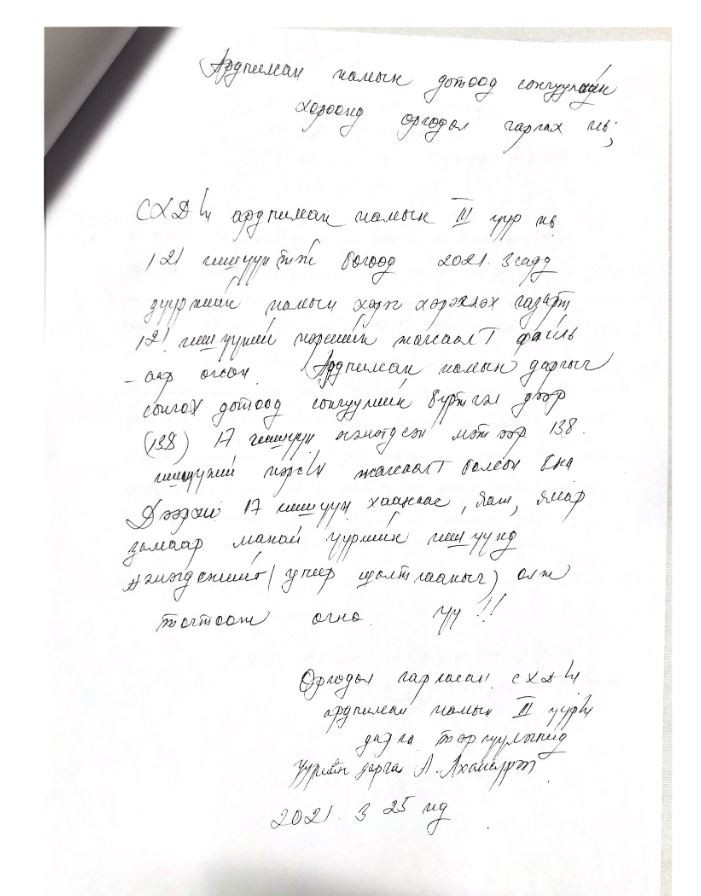 Ардчилсан намын дотоод сонгуулийн
хороонд өргөдөл гаргах нь;
СХД-ийн ардчилсан намын III үүр нь
121 гишүүнтэй бөгөөд 2021. 3 сард
дүүргийн намын хэрэг эрхлэх газарт
121 гишүүний нэрсийн жагсаалт файль
- аар өгсөн. Ардчилсан намын даргыг
сонгох дотоод сонгуулийн бүртгэл дээр
(138) 17 гишүүн нэмэгдсэн мэтээр 138
гишүүний нэрсийн жагсаалт болсон бна
Дээрхи 17 гишүүн хаанаас, яаж, ямар
замаар манай үүрийн гишүүнд
нэмэгдсэнийг (учир шалтгааныг) олж
тогтоож өгнө үү!!
Өргөдөл гаргасан СХД-ийн
ардчилсан намын III үүрийн
дарга тэргүүлэгчид
Үүрийн дарга А.
2021. 3 25 нд